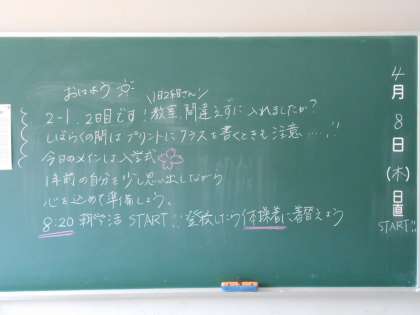 おはよう
2-1. 2日目です! 教室、間違えずに入れましたか?
しばらくの間はプリントにクラスを書くときも注意....!!
今日のメインは入学式
1年前の自分を少し思い出しながら
心を込めて準備しましょう。
8:20 朝学活 START!! 登校したら体操着に着替えよう
4月8日(木)
日直
START!!